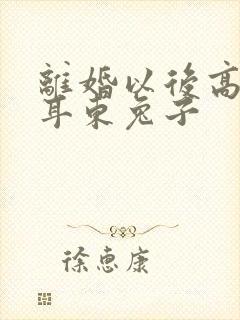 離婚以後高
耳東兔子
徐惠康